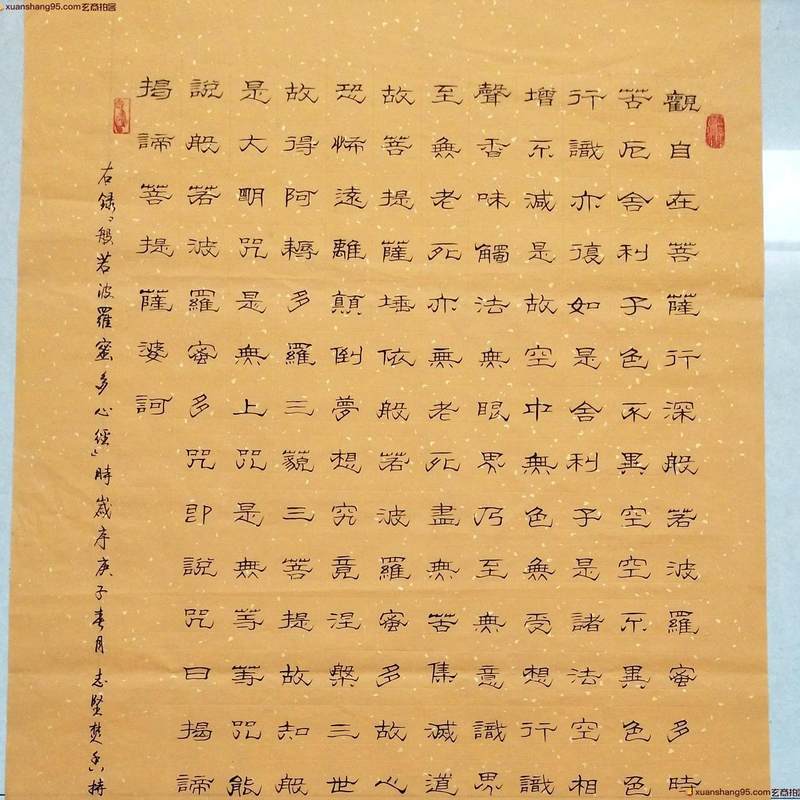 xuanshang95.com玄商拍客
觀自在菩薩行深般若波羅蜜多時
苦厄舍利子色不異空空不異色色
行識亦復如是舍利子是諸法空相
增不減是故空中無色無受想行識
聲香味觸法無眼界乃至無意識界
至無老死亦無老死盡無苦集滅道
故菩提薩埵依般若波羅蜜多故心
恐怖遠離顛倒夢想究竟涅槃三世
故得阿耨多羅三藐三菩提故知般
是大明咒是無上咒是無等等咒能
說般若波羅蜜多咒即說咒曰揭諦
揭諦菩提薩婆訶
右録「般若波羅蜜多心經」時歲序庚子春月志堅
xuanshang95.com玄商拍客